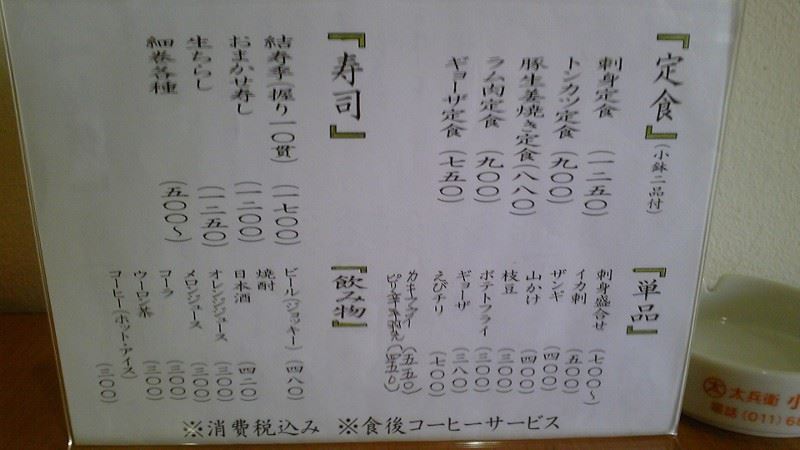 『定食』(小鉢二品付)
刺身定食 (一二五〇)
トンカツ定食 (九〇〇)
豚生姜焼き定食 (八八〇)
ラム肉定食 (九〇〇)
ギョーザ定食 (七五〇)
『寿司』
結寿季(握り一〇貫) (一七〇〇)
おまかせ寿し (一二〇〇)
生ちらし (一二五〇)
細巻各種 (五〇〇~)
『単品』
刺身盛合せ (七〇〇~)
イカ刺 (五〇〇)
ザンギ (四〇〇)
山かけ (四〇〇)
枝豆 (三〇〇)
ポテトフライ (三〇〇)
ギョーザ (三八〇)
えびチリ (七〇〇)
カキフライ (五五〇)
ピリ辛手羽先 (四五〇)
『飲み物』
ビール(ジョッキー) (四八〇)
焼酎
日本酒 (四二〇)
オレンジジュース (三〇〇)
メロンジュース (三〇〇)
コーラ (三〇〇)
ウーロン茶 (三〇〇)
コーヒー(ホット・アイス) (三〇〇)
※消費税込み ※食後コーヒーサービス
大 太兵衛 小
電話(011)68